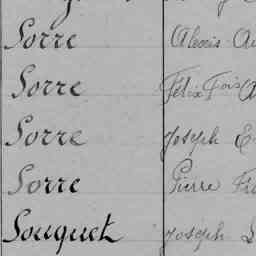 Sorre Alexis
Sorre Félix Fois
Sorre Joseph
Sorre Pierre
Souquet Joseph